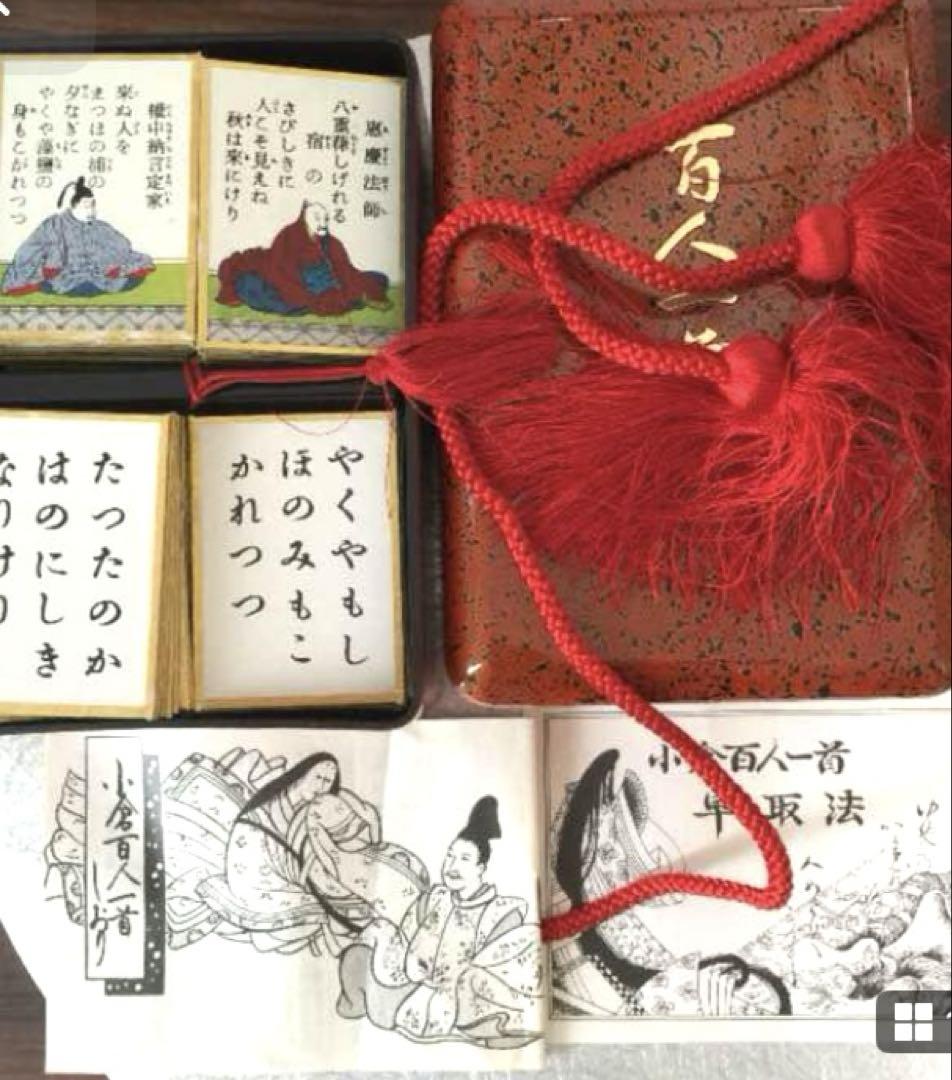 恵慶法師
八重葎しげれる
宿の
さびしきに
人こそ見えね
秋は来にけり
権中納言定家
来ぬ人を
まつほの浦の
夕なぎに
やくや藻塩の
身もこがれつつ
百人一首
やくやもし
ほのみもこ
かれつつ
たつたのか
はのにしき
なりけり
小倉百人一首
しおり
小倉百人一首
早取法